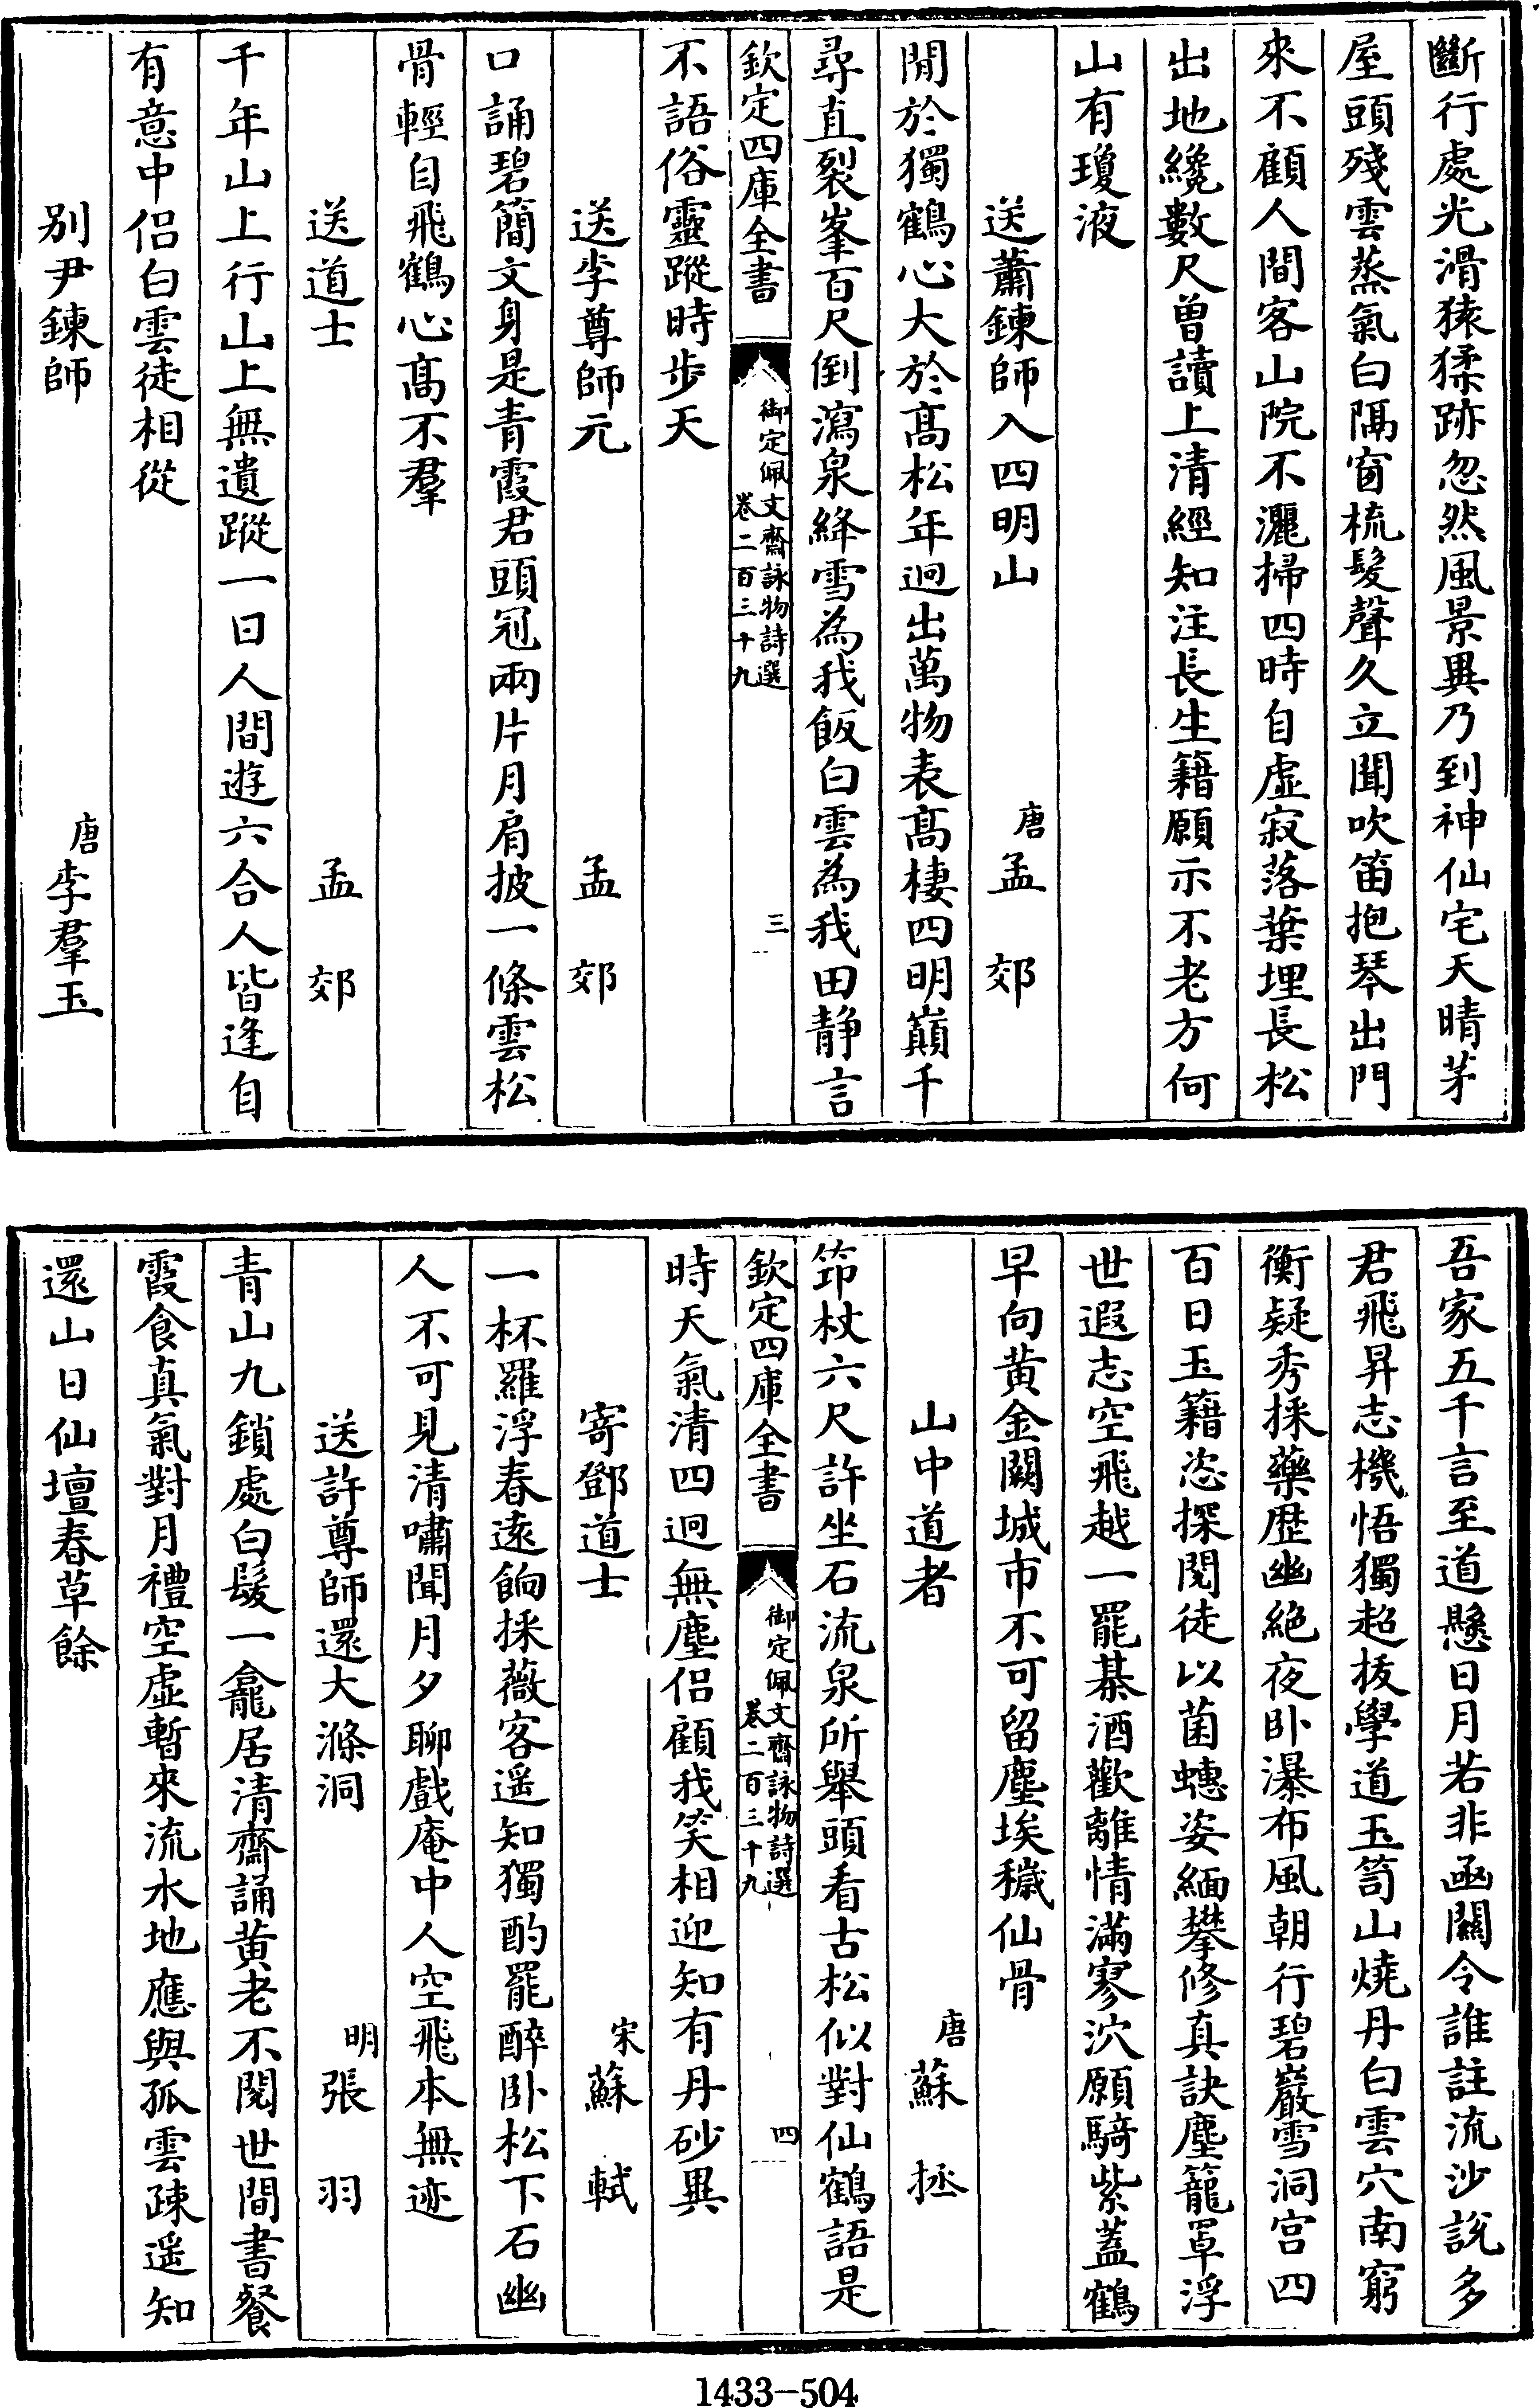 斷行處光滑猿猱跡忽然風景異乃到神仙宅天晴茅
屋頭殘雲蒸氣白隔窗梳髮聲久立聞吹笛抱琴出門
來不顧人間客山院不灑掃四時自虛寂落葉埋長松
出地纔數尺曾讀上清經知注長生籍願示不老方何
山有瓊液
送蕭鍊師入四明山 唐孟郊
閒於獨鶴心大於高松年迥出萬物表高棲四明巔千
尋直裂峯百尺倒瀉泉絳雪為我飯白雲為我田静言
欽定四庫全書 御定佩文齋詠物詩選 卷二百三十九 三
不語俗靈蹤時步天
送李尊師元 孟郊
口誦碧簡文身是青霞君頭冠兩片月肩披一條雲松
骨輕自飛鶴心高不羣
送道士 孟郊
千年山上行山上無遺蹤一日人間遊六合人皆逢自
有意中侣白雲徒相從
别尹鍊師 唐李羣玉
吾家五千言至道懸日月若非函關令誰註流沙說多
君飛昇志機悟獨超拔學道玉笥山燒丹白雲穴南窮
衡疑秀採藥歷幽絶夜卧瀑布風朝行碧巖雪洞宫四
百日玉籍恣探閱徒以菌蟪姿緬攀修真訣塵籠罩浮
世遐志空飛越一罷棊酒歡離情滿寥泬願騎紫蓋鶴
早向黄金闕城市不可留塵埃穢仙骨
山中道者 唐蘇拯
筇杖六尺許坐石流泉所舉頭看古松似對仙鶴語是
欽定四庫全書 御定佩文齋詠物詩選 卷二百三十九 四
時天氣清四迥無塵侣顧我笑相迎知有丹砂異
寄鄧道士 宋蘇軾
一杯羅浮春遠餉採薇客遥知獨酌罷醉卧松下石幽
人不可見清嘯聞月夕聊戲庵中人空飛本無迹
送許尊師還大滌洞 明張羽
青山九鎖處白髮一龕居清齋誦黄老不閱世間書餐
霞食真氣對月禮空虛暫來流水地應與孤雲疎遥知
還山日仙壇春草餘
1433-504